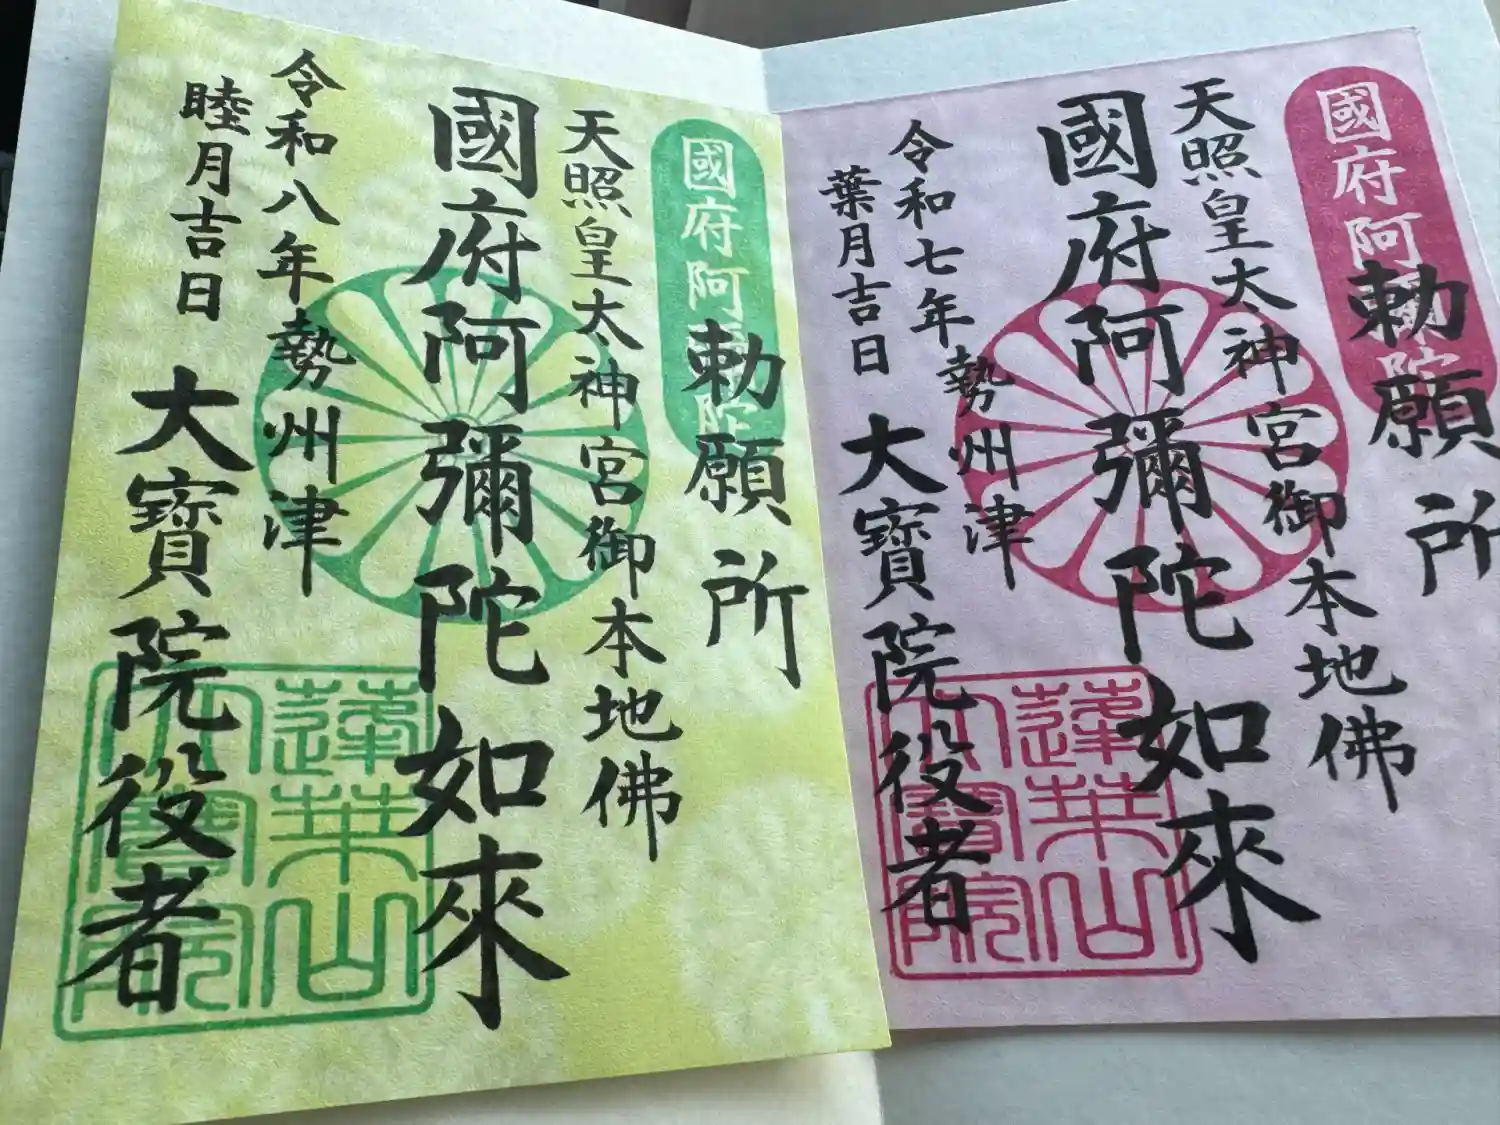 國府阿彌陀
勅願所
天照皇太神宮御本地佛
國府阿彌陀如來
令和七年勢州津
葉月吉日
大寶院役者
蓮華山
大寶院
國府阿彌陀
勅願所
天照皇太神宮御本地佛
國府阿彌陀如來
令和八年勢州津
睦月吉日
大寶院役者
蓮華山
大寶院